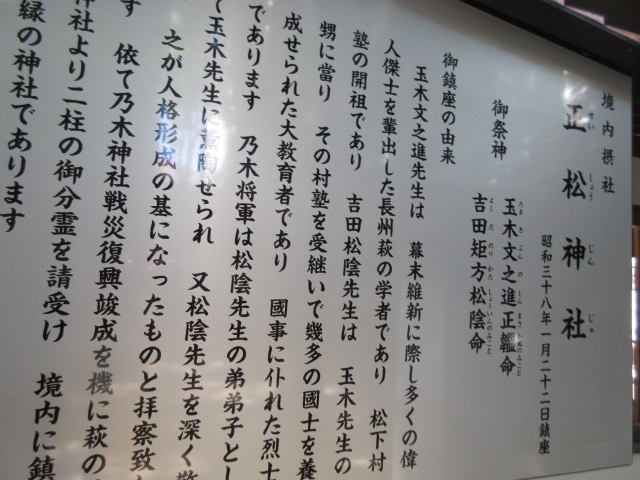 境内摂社
正松神社
せいしょうじんじゃ
昭和三十八年一月二十二日鎮座
御祭神
玉木文之進正韞命
たまきぶんのしんまさかねのみこと
吉田矩方松陰命
よしだのりかたしょういんのみこと
御鎮座の由来
玉木文之進先生は 幕末維新に際し多くの偉
人傑士を輩出した長州萩の学者であり 松下村
塾の開祖であり 吉田松陰先生は 玉木先生の
甥に當り その村塾を受継いで幾多の國士を養
成せられた大教育者であり 國事に仆れた烈士
であります 乃木将軍は松陰先生の弟弟子とし
て玉木先生に薫陶せられ 又松陰先生を深く敬
之が人格形成の基になったものと拝察致し
す 依て乃木神社戦災復興竣成を機に萩の
神社より二柱の御分霊を請受け 境内に鎮
縁の神社であります